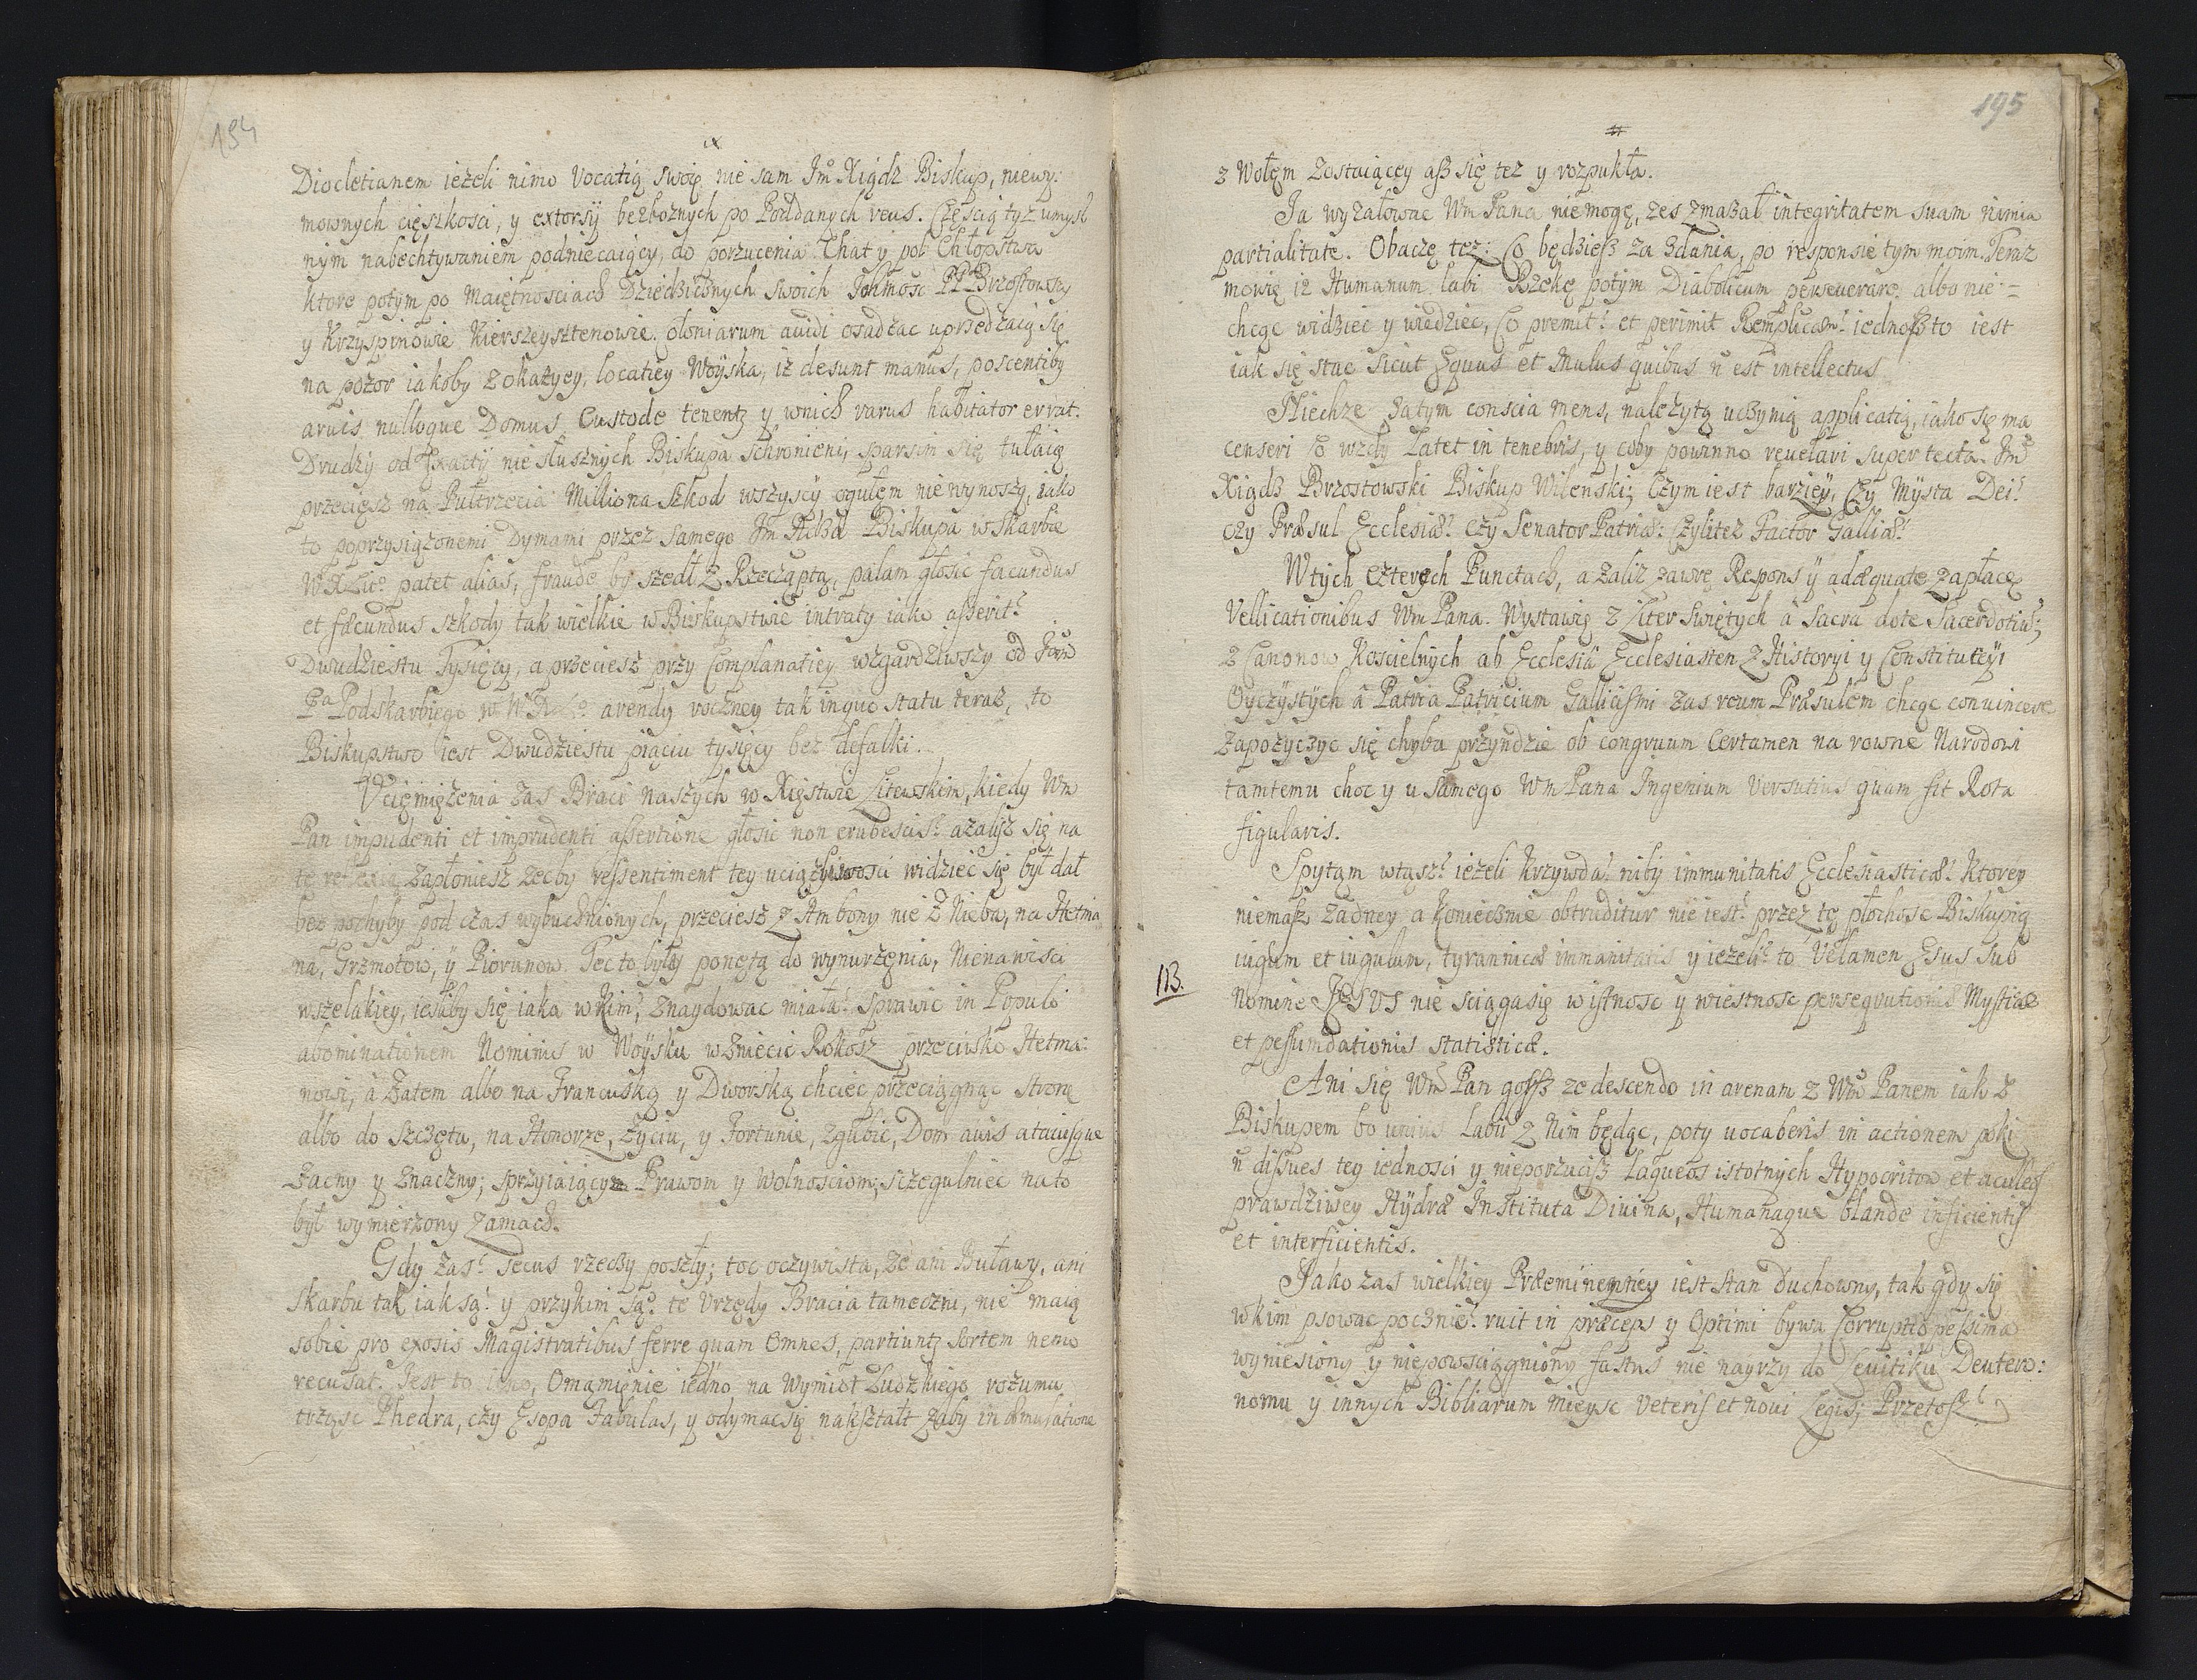 194
ix
Diocletianem ieżeli nimo Vocatią swoię nie sam Jm̃ Xiądz Biskup, niewy:
mownych cięszkosci, y extorsÿ bezbożnych po Poddanych reus. Częscią tyż umysl
nym nabechtywaniem podniecaiący, do porzucenia Chat y pol Chłopstwa
ktore potym po Maiętnosciach Dziedzicznych swoich Jchmosc PP Brzostowscy
y Krzyspinowie Kierszeysztenowie. oloniarum auidi osadzac uprzedzaią się
na pozor iakoby z okazyey, locatiey Woÿska, iż desunt manus, poscentiby
aruis nulloque Domus Custode tenentz y wnich rarus habitator errat.
Drudzy od Exactÿ nie słusznych Biskupa schronieni, sparsim się tułaią
przeciesz na Pułtrzecia Milliona Szkod wszyscÿ ogułem nie wynoszą, iako
to poprzysiążonemi Dymami przez samego Jm̃ Xdza Biskupa w Skarbie
WXLitº patet alias, fraude by szedł z Rzecząptą, palam głosic facundus
et fæcundus szkody tak wielkie w Biskupstwie intraty iako asserit?
Dwudziestu Tysięcy, a przeciesz przy Complanatiey wzgardziwszy od Jm̃
Pª Podskarbiego w W arendy roczney tak in quo statu teraz, to
Biskupstwo iest Dwudziestu piąciu tysięcy bez defalki.
Uciemiężenia zas Braci naszych w Xięstwie Litewskim, kiedy Wm
Pan impudenti et imprudenti assertione głosic non erubescis? azalisz się na
tę zapłoniesz zecby ressentiment tey uciążliwosci widziec się był dał
bez pochyby pod czas wybuchnionych, przeciesz z Ambony nie z Nieba, na Hetma
na, Grzmotow, ÿ Piorunow. Tec to były ponętą do wynurzęnia, Nienawisci
wszelakiey, iesliby się iaka w kim, znaydowac miała? sprawic in Populo
abominationem Nominis w Woÿsku wzniecic Rokosz przeciwko Hetma:
nowi, a zatem albo na Francuską y Dworską chciec przeciągnąc stronę
albo do szczętu, na Honorze, Zyciu, y Fortunie, zgubic, Dom auis atauisque
zacny y znaczny; sprzyiaiącym Prawom y Wolnosciom, sczegulniec na to
był wymierzony zamach.
Gdy zas? secus rzeczy poszły; toc oczywista, że ani Buławy, ani
skarbu tak iak są? y przykim są? te Urzędy Bracia tameczni, nie maią
sobie pro exosis Magistratibus ferre quam Omnes, partiuntz sortem nemo
recusat. Jest to , Omamięnie iedno na Wymiot Ludzkiego rozumu
trząsc Phedra, czy Esopa Fabulas, y odymac się nakształt żaby in æmulatione
195
z Wołęm zostaiącey asz się tez y rozpukła.
Ja wyżałowac Wm Pana niemogę, zes zmazał integritatem suam nimia
partialitate. Obaczę tez: Co będziesz za zdania, po responsie tym moim. Teraz
mowię iż Humanum labi. Rzekę potym Diabolicum perseuerare. albo nie:=
chcąc widziec y wiedziec, Co premit? et perimit Remplicam? iednosz to iest
iak się stac sicut Equus et Mulus quibus ñ est intellectus
Niechze zatym conscia mens, należytą uczynią applicatią, iako się ma
censeri Co wzdy Latet in tenebris, y coby powinno reuelari super tecta. Jm̃
Xigdz Brzostowski Biskup Wilenski; Czym iest barziey, Czy Mysta Dei?
czy Præsul Ecclesiæ? Czy Senator Patriæ: Czylitez Factor Galliæ?
W tych czterech Punctach, a zaliz zawrę Respons ÿ adæquate zapłacę
Vellicationibus Wm Pana. Wystawię z Liter Swiętych à Sacra dote Sacerdotiu;
z Canonow Koscielnych ab Ecclesia Ecclesiasten z Historyi y Constitucÿi
Oyczystych à Patria Patricium Galliasmi zas reum Præsulem chcąc conuincere
zapożyczyc się chyba przyndzie ob congruum Certamen na rowne Narodowi
tamtemu choc y u samego Wm Pana Ingenium Versutius quam sit Rota
figularis.
Spytam wtąsz? ieżeli Krzywda? niby immunitatis Ecclesiasticæ? Ktorey
niemasz żadney a Koniecznie obtruditur nie iest? przez tę płochosc Biskupią
iugum et iugulum, tyrannicæ immanitatis y ieżeli? to Velamen Esus sub
113.
Nomine JESUS nie sciągasię w istnosc y wiestnosc persequutionis Mysticæ
et pessumdationis statisticæ.
Ani się Wm̃ Pan gorsz ze descendo in arenam z Wm̃ Panem iak z
Biskupem bo unius Labii z Nim będąc, poty uocaberis in actionem poki
ñ dissues tey iednosci y nieporzucisz Laqueos istotnych Hypocritow et aculeos
prawdziwey Hÿdræ Instituta Diuina, Humanaque blande inficientis
et interficientis.
Jako zas wielkiey Præeminentiey iest Stan Duchowny, tak gdy się
w kim psowac pocznie? ruit in præceps y Optimi bywa Corruptio pessima
wyniesiony y niepowsciągniony fastus nie nayrzy do Leuitiku Deutero:
nomu y innych Bibliarum mieysc Veteris et noui Legis; Przetosz?